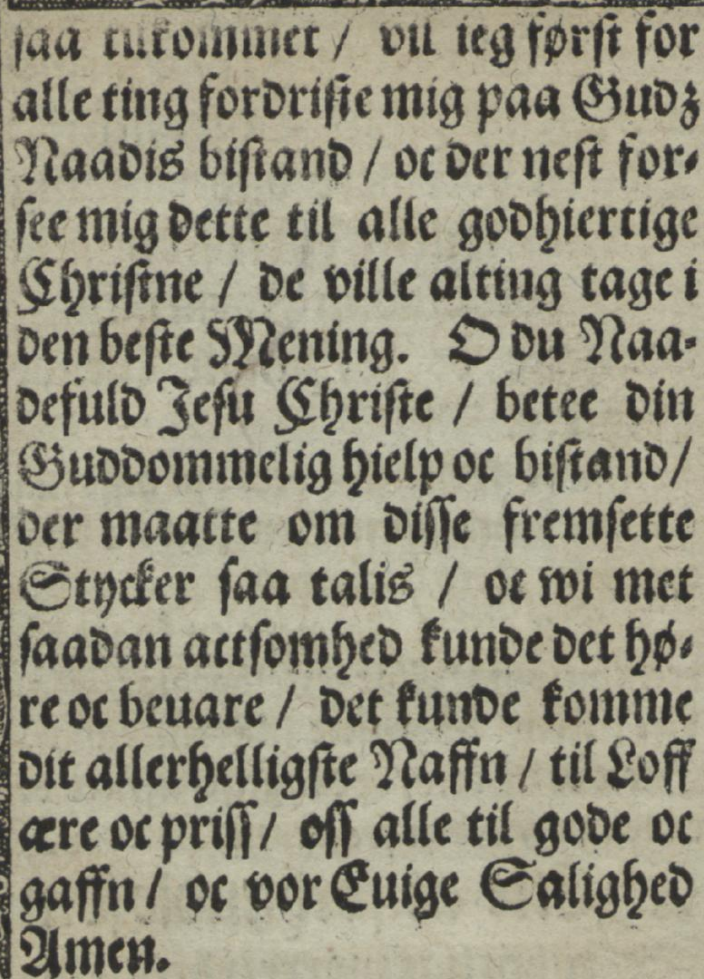 saa tilkommet / vil ieg først for
alle ting fordriste mig paa Gudz
Naadis bistand / oc der nest for-
see mig dette til alle godhiertige
Christne / de ville alting tage i
den beste Mening. O du Naa-
defuld Jesu Christe / betee din
Guddommelig hielp oc bistand /
der maatte om disse fremsette
Stycker saa talis / oc wi met
saadan actsomhed kunde det hø-
re oc beuare / det kunde komme
dit allerhelligste Naffn / til Loff
ære oc priss / oss alle til gode oc
gaffn / oc vor Euige Salighed
Amen.